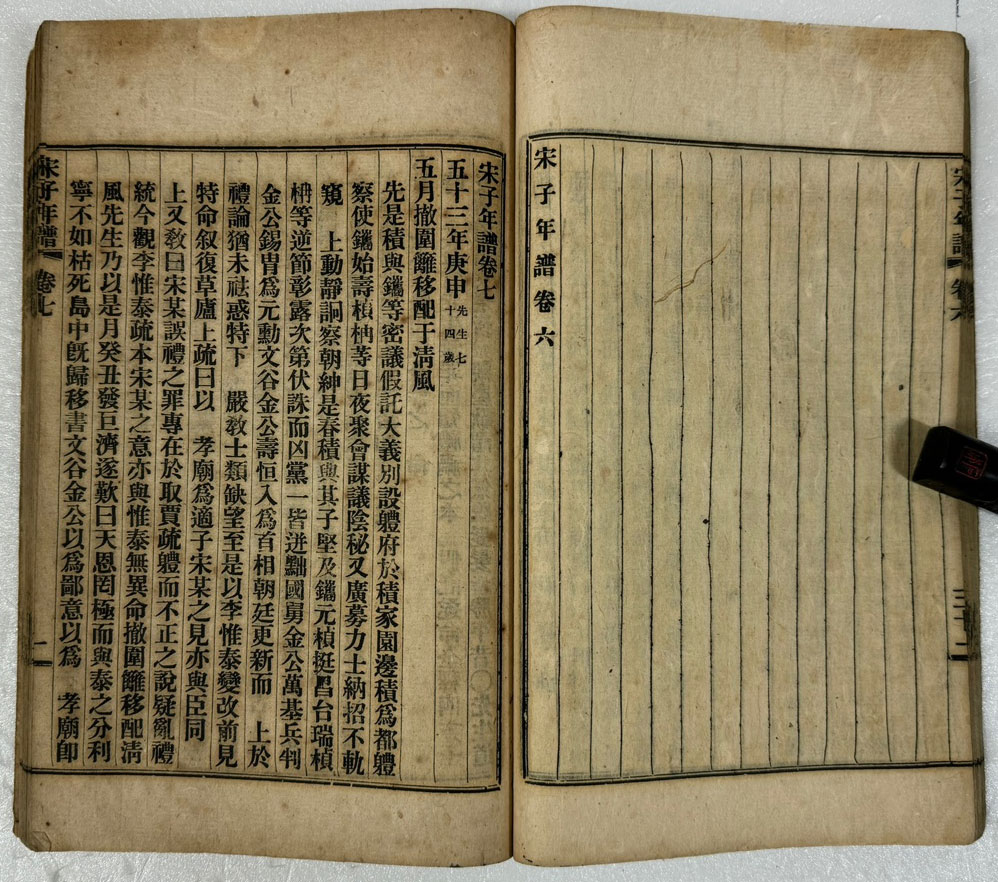 宋子年譜 卷六 三十二
宋子年譜卷六
宋子年譜卷七
五十三年庚申 先生七十四歲
五月撤圍籬移配于淸風
先是積與鑴等密議假託大義別設軆府於積家園邊積爲都軆
察使鑴始壽楨柟等日夜聚會謀議陰秘又廣募力士納招不軌
窺 上動靜詗察朝紳是春積與其子堅及鑴元楨挺昌台瑞楨
柟等逆節彰露次第伏誅而凶黨一皆迸黜國舅金公萬基兵判
金公錫胄爲元勳文谷金公壽恒入爲首相朝廷更新而 上於
禮論猶未祛惑特下 嚴敎士類缺望至是以李惟泰變改前見
特命叙復草廬上疏曰以 孝廟爲適子宋某之見亦與臣同
上又敎曰宋某誤禮之罪專在於取賈疏軆而不正之說疑亂禮
統今觀李惟泰疏本宋某之意亦與惟泰無異命撤圍籬移配淸
風先生乃以是月癸丑發巨濟逐歎曰天恩罔極而與泰之分利
寧不如枯死島中旣歸移書文谷金公以爲鄙意以爲 孝廟卽
宋子年譜 卷七 一